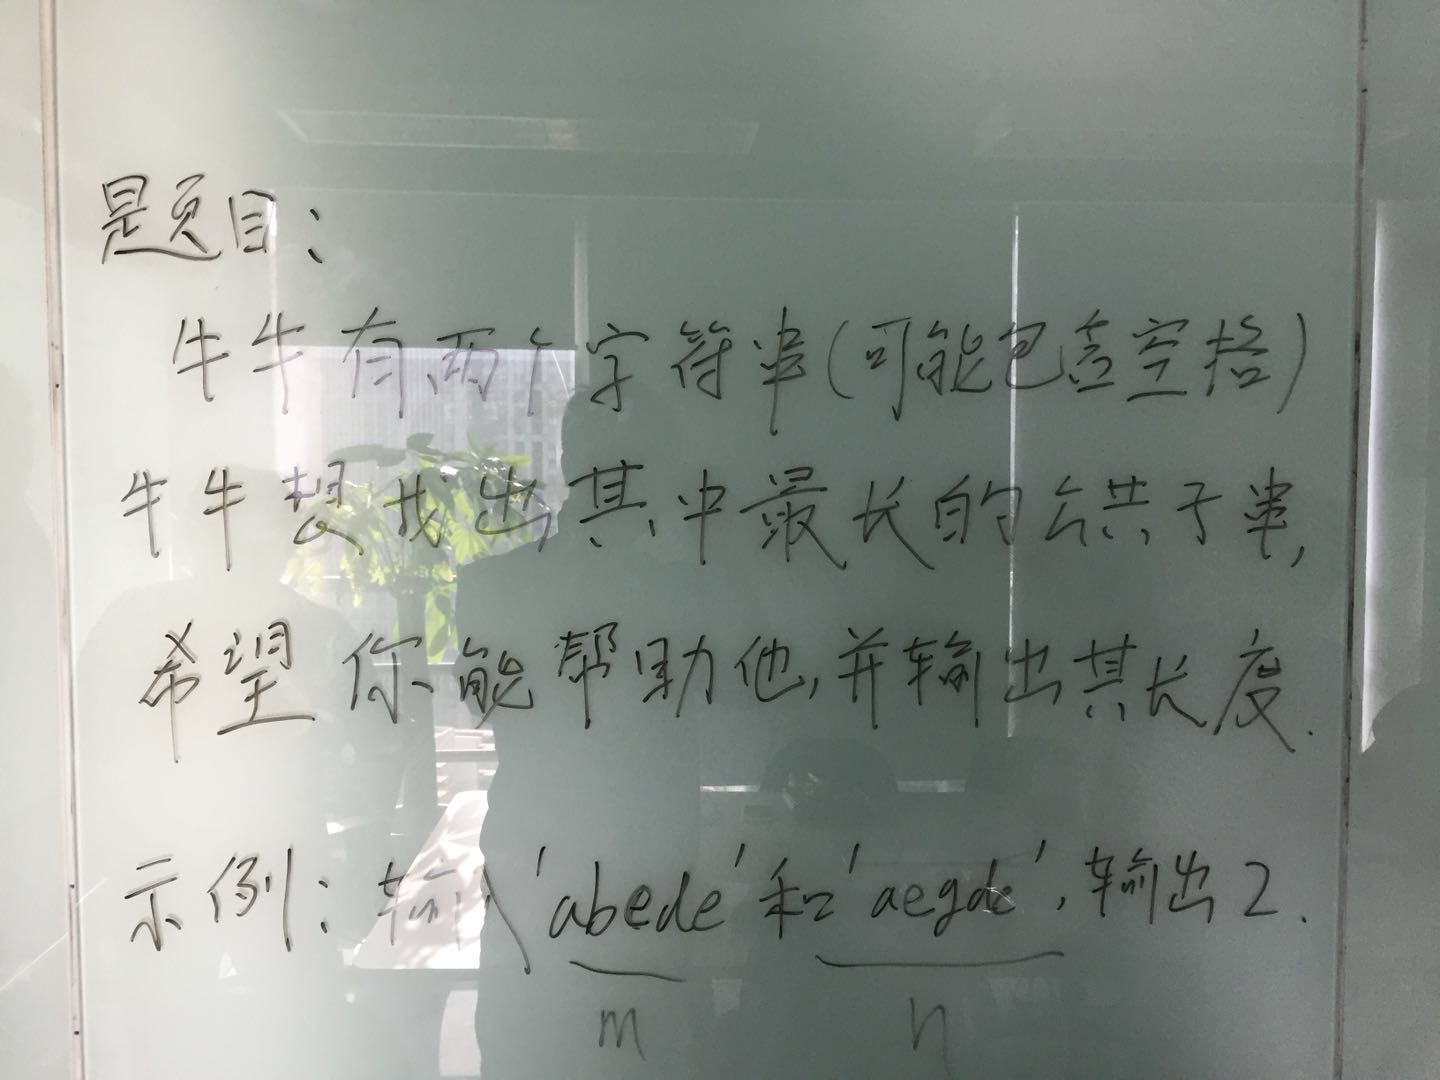 题目:
牛牛有两个字符串(可能包含空格)
牛牛想找出其中最长的公共子串,
希望你能帮助他,并输出其长度.
示例:输入'abede'和'aegde',输出2.
m n